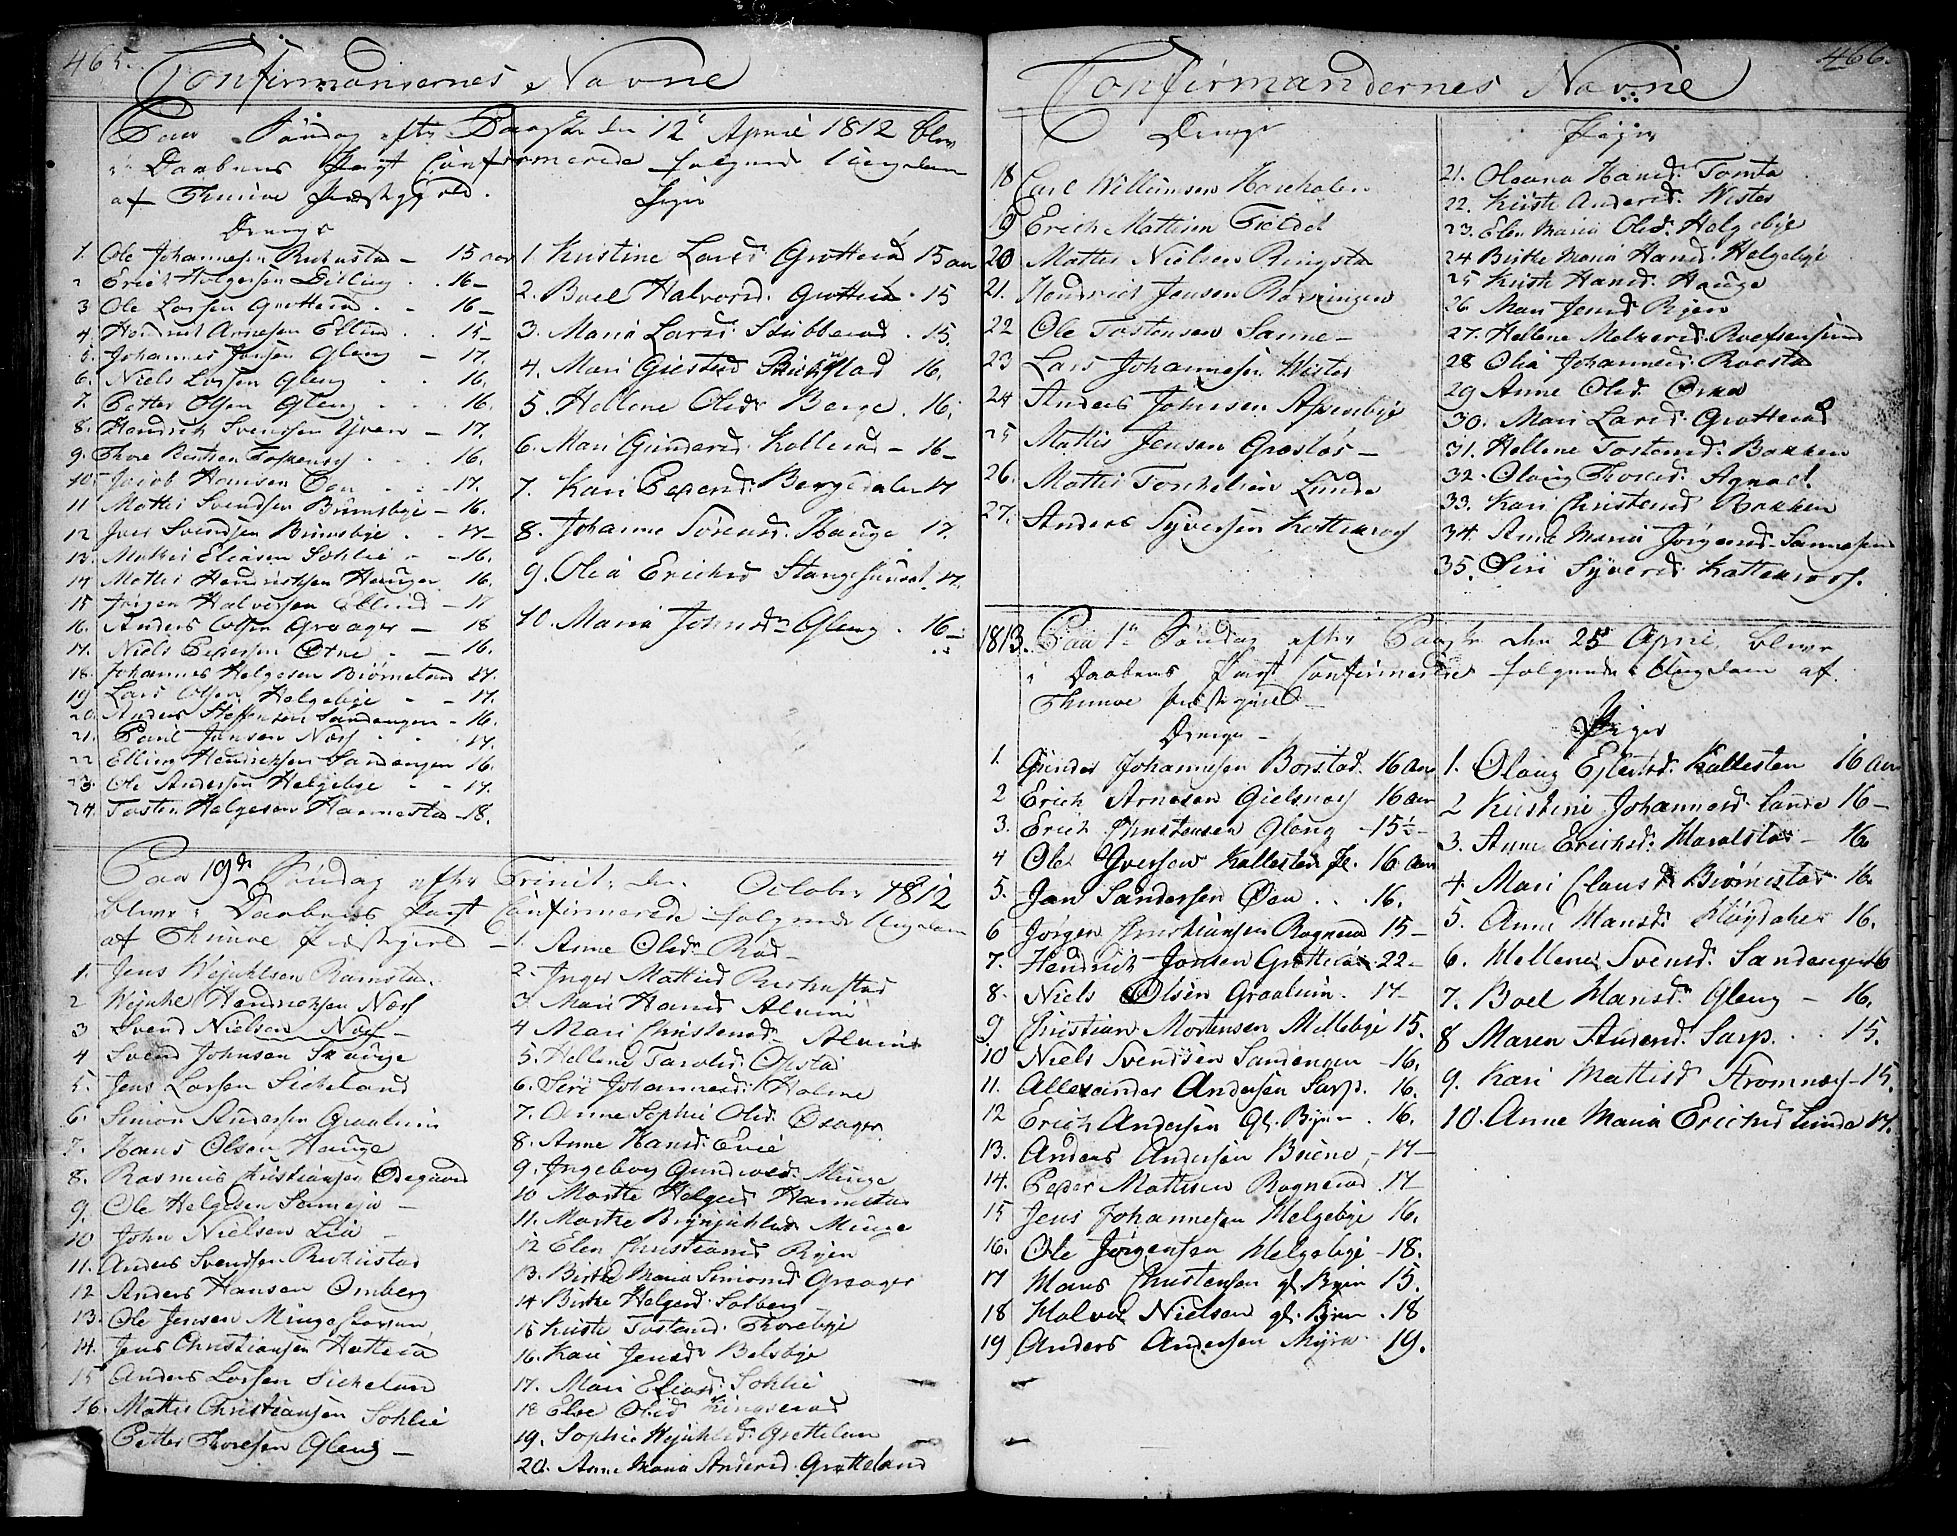 465.
Confirmandernes Navne
Paa Søndag efter Paaske den 12te April 1812 blev
i Daabens Pagt Confirmerede følgende Ungdom
af Thunøe Præstegjeld.
Drenge
1. Ole Johannesen Ruhustad – 15 aar
2 Erich Helgesen Dilling . . 16 –
3 Ole Larsen Grotterød . . 16 –
4. Hendrich Arnesen Ellind . 15 –
5. Johannes Jonsen Gleng – 17.
6. Niels Larsen Gleng . . 16.
7. Petter Olsen Gleng . . . 16.
8. Hendrich Svendsen Yven – 17.
9. Thore . . . 16.
10. Jacob Hansen Øen . . . 17.
11 Mathis Svendsen Brunsbye – 16.
12 Iver Svendsen Brunsbye . . 17 –
13. Mathis Eliasen Sohlie . – 16.
14 Mathis Hendrichsen Hauger 16.
15 Jørgen Halvorsen Ellind – 17
16. Anders Olsen Graager – 18
17. Niels Pedersen Øtne . – 16.
18. Johannes Helgesen Biørneland 17.
19 Lars Olsen Helgebye . – 17.
20. Anders Steffensen Sandengen – 16.
21. Paul Jansen Næss . . 17.
22 Elling Hendrichsen Sandengen 16.
23. Ole Andersen Helgebye . – 17.
24. Tosten Helgesen Hannestad – 18.
Piger
1. Kirstine Larsd. Grotterød 15 aar
2. Boel Halvorsd. Grotterød . 15
3. Maria Larsd. Stubberød . 15.
4. Mari Giertsd 16.
5. Hellene Olsd. Berge . 16.
6. Mari Gundersd. Kollerød – 16 –
7. Kari Pedersd. Bergsdalen 17
8. Johanne Sørensd. Hauge . 17.
9. Olea Erichsd Stangesund . 17.
10. Maria Johnsd. Gleng . 16 –
Paa 19de Søndag efter Trinit. den October 1812
blev i Daabens Pagt Confirmerede følgende Ungdom
af Thunøe Præstegjeld –
1. Jens Wejuhlsen Ramstad.
2 Wejuhl Hendrichsen Næss
3 Svend Nielsen Næss –
4 Svend Johnsen Skauge
5. Jens Larsen Sicheland
6. Simon Andersen Graalum
7. Hans Olsen Hauge
8. Rasmus Christiansen Ødegaard
9. Ole Helgesen Sannesø –
10 John Nielsen Lia –
11. Anders Svendsen Ruhustad
12 Anders Hansen Omberg
13. Ole Jensen Mingeskoven
14. Jens Christiansen Hatterød
15 Anders Larsen Sicheland
16. Mathis Christiansen Sohlie
Petter Thoresen Gleng –
1. Anne Olsd. Rød –
2. Inger Mathisd Ruhustad
3 Mari Hansd Alvim
4 Mari Christensd. Alvim
5. Hellene Taralds. Opstad
6. Siri Johannesd. Holme
7. Anne Sophie Olsd. Øsager
8. Anne Hansd. Evie
9. Ingeborg Gundersd. Minge
10 Marthe Helgesd Hannestad
11. Marthe Brynjuhlsd Minge
12 Elen Christiansd Ryen
13. Birthe Maria Simonsd Graager
14 Birthe Helgesd Solberg
15 Kirste Tostensd. Thorebye
16. Kari Jensd Belsbye
17. Mari Eliasd. Sohlie
18 Else Olsd Kingserød
19. Sophie Wejuhlsd. Grotteland
20. Anne Maria Andersd. Grotteland
466.
Confirmandernes Navne
Drenge
18 Carl Willumsen Hareholen
19 Erich Mathisen Fieldet
20 Mathis Nielsen Ringstad
21. Hendrich Jensen Rørningen
22 Ole Tostensen Sanne –
23 Lars Johannesen Wister
24 Anders Johnsen Aspenbye
25 Mathis Jensen Græsløs –
26. Mathis Torchelsen Lunde
27. Anders Syversen Kattenross
Piger
21. Oleana Hansd. Tomta
22. Kirste Andersd. Wister
23. Elen Maria Olsd. Helgebye
24 Birthe Maria Hansd. Helgebye
25 Kirste Hansd. Hauge
26. Mari Jensd. Ryen
27. Hellene Melversd. Roefsensund
28 Olia Johannesd. Roestad
29 Anne Olsd. Orka
30. Mari Larsd. Grotterød
31. Hellene Tostensd. Bakken
32. Olaug Thoresd. Agnalt
33. Kari Christensd Bakken
34. Ane Maria Jørgensd. Sannesund
35. Siri Syversd Kattenross.
1813. Paa 1te Søndag efter Paaske den 25de April, blev
i Daabens Pagt Confirmerede følgende Ungdom af
Thunøe Præstegjeld –
Drenge –
1. Gunder Johannesen Borstad. 16 aar
2 Erich Arnesen Gielsnæs 16 aar
3. Erich Christensen Gleng – 15½ –
4 Ole Yversen Kallesten . 16 aar
5. Jan Sandersen Øen . . . 16.
6 Jørgen Christiansen Rognerød 15 –
7. Hendrich Jonsen Grotterød – 22 –
8. Niels Olsen Graalum . 17 –
9. Christian Mortensen Mellebye 15.
10 Niels Svendsen Sandengen – 16.
11. Allexander Andersen Sarp. 16.
12 Erich Andersen Gl. Byen . 16.
13. Anders Andersen Buene, – 17 –
14. Peder Mathisen Rognerød. 17
15 Jens Johannesen Helgebye 16.
16. Ole Jørgensen Helgebye – 18.
17 Hans Christensen gl. Byen 15.
18 Halvor Nielsen gl. Byen . 18
19 Anders Andersen Myra . 19.
Piger
1. Olaug Ejlertsd. Kallesten 16 aar
2 Kirstine Johannesd. Lunde 16 –
3. Anne Erichsd. Haralstad – 16.
4. Mari Clausd. Biørnestad 16.
5. Anne Hansd. Kløgtaker 16.
6. Hellene Svensd. Sandengen 16
7. Boel Hansd. Gleng – 16.
8 Maren Andersd. Sarp . . 15.
9. Kari Mathisd Strømnæs – 15.
10. Anne Maria Erichsd Lunde 17.